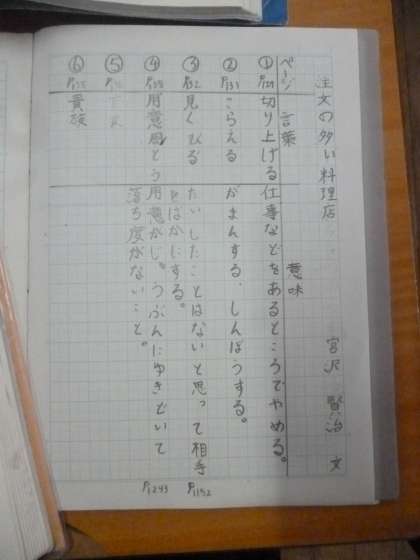 注文の多い料理店 宮沢 賢治 文
ページ 言葉 意味
① 切り上げる 仕事などをあるところでやめる。
② P131 こらえる がまんする。しんぼうする。
③ P132 見くびる たいしたことはないと思って相手
をばかにする。
④ 用意周とう 用意がじゅうぶんにゆきとどいて
落ち度がないこと。
⑤
⑥ 貴族
P1152
P1243